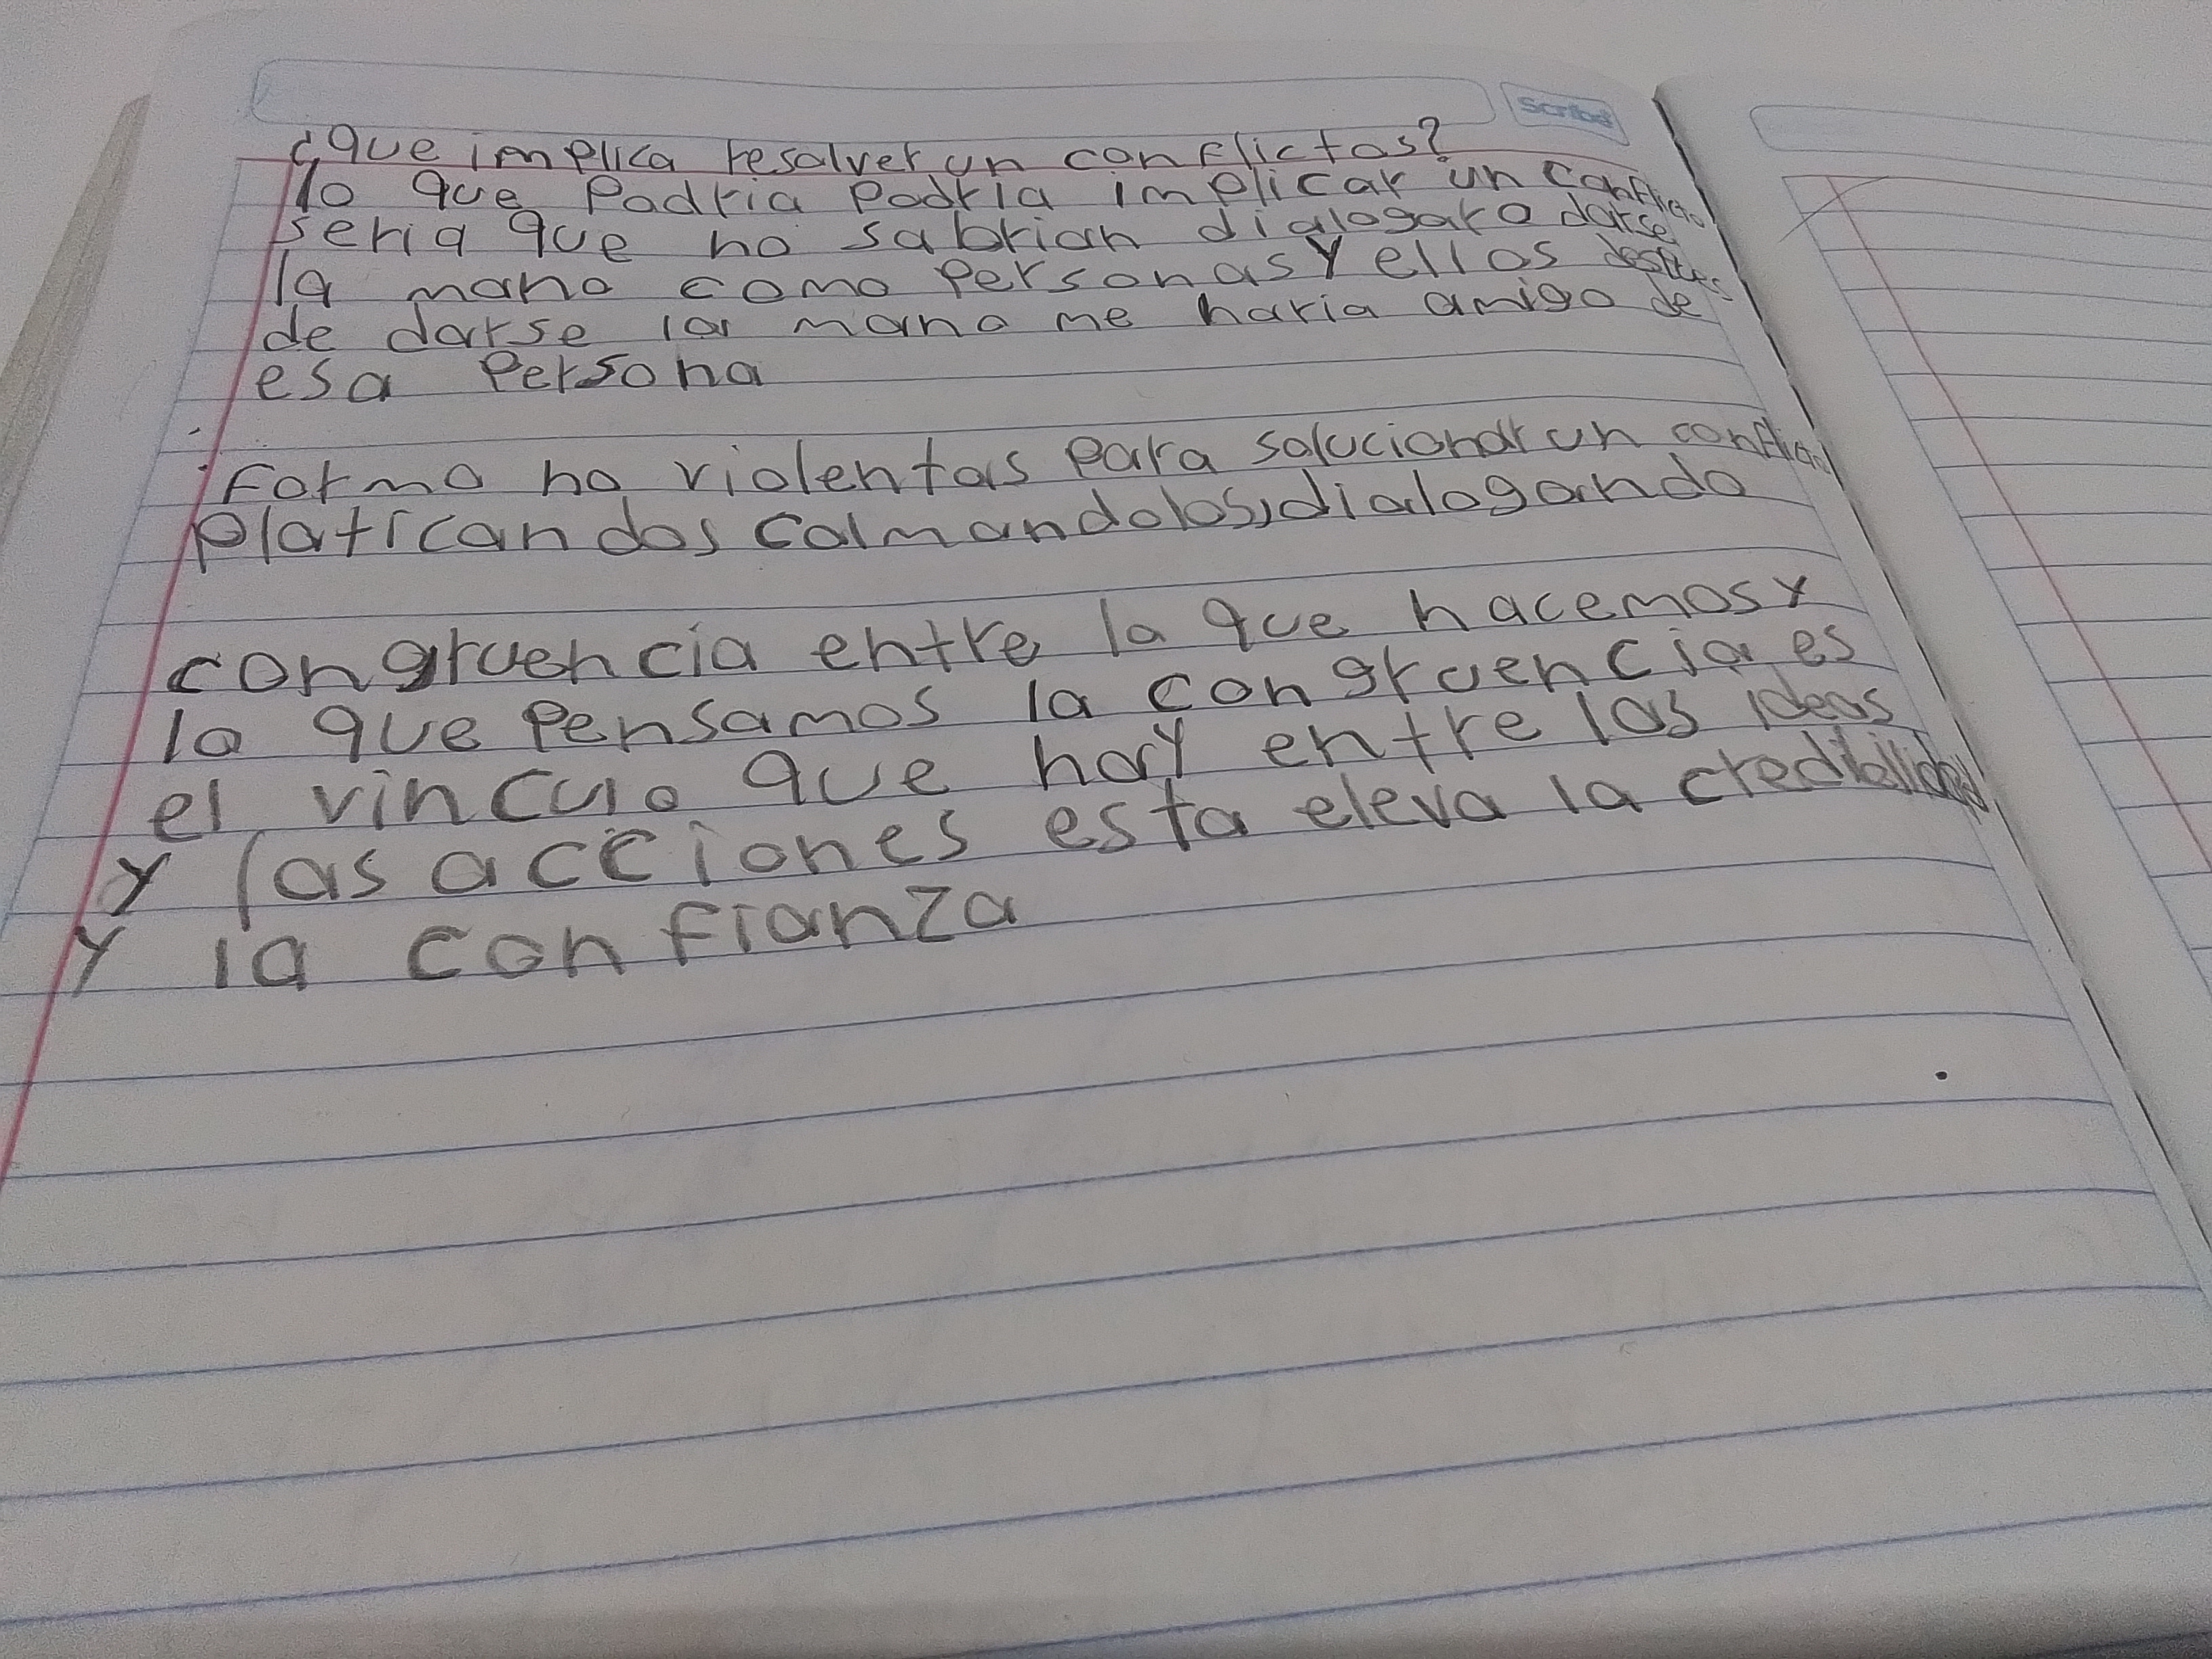 Scribe
¿Que implica resolver un conflictos?
lo que Podria Podria implicar un conflicto
seria que no sabrian dialogar o darse
la mano como Personas y ellos despues
de darse la mano me haria amigo de
esa Persona
Forma no violentas para solucionar un conflicto
Platicandos calmandolos, dialogando
congruencia entre lo que hacemos y
lo que Pensamos la congruencia es
el vinculo que hay entre las ideas
y las acciones esta eleva la credibilidad
y la confianza